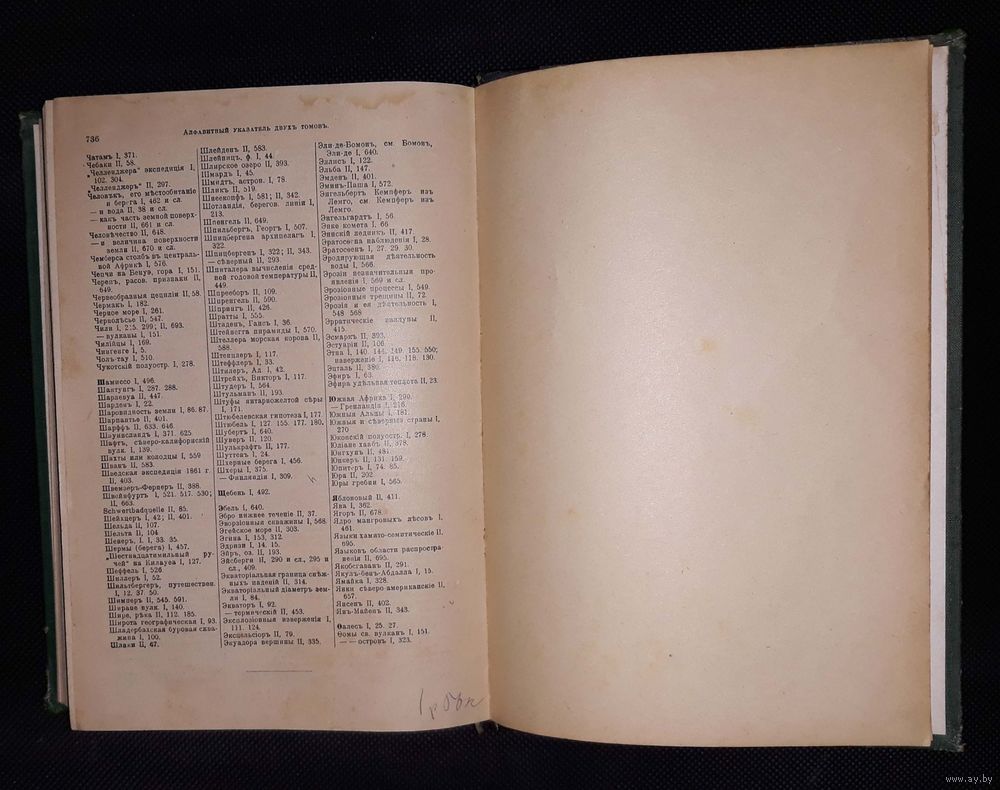 736
Алфавитный указатель двухъ томовъ.
Чатамъ I, 371.
Чебаки II, 58.
„Челленджера“ экспедиція I,
102. 304.
„Челленджеръ“ II, 297.
Человѣкъ, его мѣстообитаніе
и берега I, 462 и сл.
— и вода II, 38 и сл.
— какъ часть земной поверх-
ности II, 661 и сл.
Человѣчество II, 648.
— и величина поверхности
земли II, 670 и сл.
Чемберса столбъ въ централь-
ной Африкѣ I, 576.
Чепчи на Бенуэ, гора I, 151.
Черепъ, расов. признаки II,
649.
Червеобразныя цециліи II, 58.
Чермакъ I, 182.
Черное море I, 261.
Чернолѣсье II, 547.
Чили I, 215. 299; II, 693.
— вулканы I, 151.
Чилійцы I, 169.
Чингенге I, 5.
Чолъ-тау I, 510.
Чукотскій полуостр. I, 278.
Шамиссо I, 496.
Шантунгъ I, 287. 288.
Шарлевуа II, 447.
Шарденъ I, 22.
Шаровидность земли I, 86. 87.
Шарпантье II, 401.
Шарффъ II, 633. 646.
Шаунисландъ I, 371. 625
Шафтъ, сѣверо-калифорнскій
вулк. I, 139.
Шахты или колодцы I, 559
Шванъ II, 583.
Шведская экспедиція 1861 г.
II, 403.
Швемзеръ-Фернеръ II, 388.
Швейнфуртъ I, 521. 517. 530;
II, 663.
Schwertbadquelle II, 85.
Шейхцеръ I, 42; II, 401.
Шельда II, 107.
Шельта II, 104
Шенеръ, I. I, 33. 35.
Шермы (берега) I, 457.
„Шестнадцатимильный ру-
чей“ на Килауеа I, 127.
Шеффель I, 526.
Шиллеръ I, 52.
Шильтбергеръ, путешествен.
I, 12. 37. 50.
Шимперъ II, 545. 591.
Ширане вулк. I, 140.
Шире, рѣка II, 112. 185.
Широта географическая I, 93.
Шладербахская буровая сква-
жина I, 100.
Шлаки II, 67.
Шлейденъ II, 583.
Шлейницъ, ф. I, 44.
Шлирское озеро II, 393.
Шмардъ I, 45.
Шмидтъ, астрон. I, 78.
Шликъ II, 519.
Шнеекопфъ I, 581; II, 342.
Шотландія, берегов. линіи I,
213.
Шпенгель II, 649.
Шпильбергъ, Георгъ I, 507.
Шпицбергена архипелагъ I,
322
Шпицбергенъ I, 322; II, 343.
— сѣверный II, 293.
Шпиталера вычисленія сред-
ней годовой температуры II,
449.
Шпрееборъ II, 109.
Шпренгель II, 590.
Шпрингъ II, 426.
Шратты I, 555.
Штаденъ, Гансъ I, 36.
Штейнегга пирамиды I, 570.
Штеллера морская корова II,
588.
Штенцлеръ I, 117.
Штеффлеръ I, 33.
Штилеръ, Ад. I, 42.
Штрейхъ, Викторъ I, 117.
Штудеръ I, 564.
Штульманъ II, 193.
Штуфы янтарножелтой сѣры
I, 171.
Штюбелевская гипотеза I, 177.
Штюбель I, 127. 155. 177. 180.
Шубертъ I, 640.
Шуверъ II, 120.
Шулькрафтъ II, 177.
Шуттенъ I, 24.
Шхерные берега I, 456.
Шхеры I, 375.
— Финляндіи I, 309.
Щебень I, 492.
Эбель I, 640.
Эбро нижнее теченіе II, 37.
Эворзіонныя скважины I, 568.
Эгейское море II, 303.
Эгина I, 153, 312.
Эдризи I, 14. 15.
Эйръ, оз. II, 193.
Эйсберги II, 290 и сл., 295 и
сл., 409.
Экваторіальная граница снѣж-
ныхъ паденій II, 314.
Экваторіальный діаметръ зем-
ли I, 84.
Экваторъ I, 92.
— термическій II, 453.
Эксплозіонныя изверженія I,
111. 124.
Эксцельсіоръ II, 79.
Экуадора вершины II, 335.
Эли-де-Бомонъ, см. Бомонъ,
Эли-де I, 640.
Эллисъ I, 122.
Эльба II, 147.
Эмденъ II, 401.
Эминъ-Паша I, 572.
Энгельбертъ Кемпферъ изъ
Лемго, см. Кемпферъ изъ
Лемго.
Энгельгардтъ I, 56.
Энке комета I, 66
Эннскій ледникъ II, 417.
Эратосѳена наблюденія I, 28.
Эратосѳенъ I, 27. 29. 30.
Эродирующая дѣятельность
воды I, 566.
Эрозіи незначительныя про-
явленія I, 569 и сл.
Эрозіонные процессы I, 549.
Эрозіонныя трещины II, 72.
Эрозія и ея дѣятельность I,
548 568
Эрратическіе валуны II,
415.
Эсмаркъ II, 393.
Эстуаріи II, 106.
Этна I, 140. 144. 149. 155. 550;
изверженіе I, 116. 118. 130.
Энталь II, 380.
Эфиръ I, 63.
Эфира удѣльная теплота II, 23.
Южная Африка I, 299.
— Гренландія I, 216.
Южныя Альпы I, 181.
Южныя и сѣверныя страны I,
270
Юконскій полуостр. I, 278.
Юліане хаабъ II, 378.
Юнгхунъ II, 481.
Юнкеръ II, 131. 159.
Юпитеръ I, 74. 85.
Юра II, 202
Юры гребни I, 565.
Яблоновый II, 411.
Ява I, 362.
Ягоръ II, 678.
Ядро мангровыхъ лѣсовъ I,
461.
Языки хамито-семитическіе II.
695.
Языковъ области распростра-
ненія II, 695.
Якобсгавенъ II, 291.
Якутъ-бенъ-Абдалла I, 15.
Ямайка I, 328.
Янки сѣверо-американскіе II.
657.
Янсенъ II, 402.
Янъ-Майенъ II, 343.
Ѳалесъ I, 25. 27.
Ѳомы св. вулканъ I, 151.
— — островъ I, 323.
www.ay.by